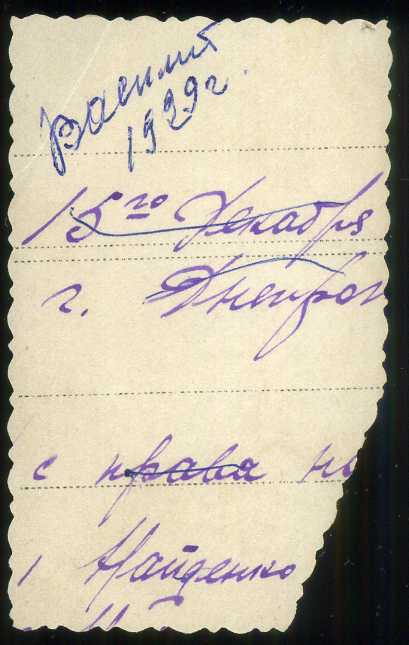 Василий
1929 г.
15го Декабря
г. Днепроп
с права на
1 Найденко